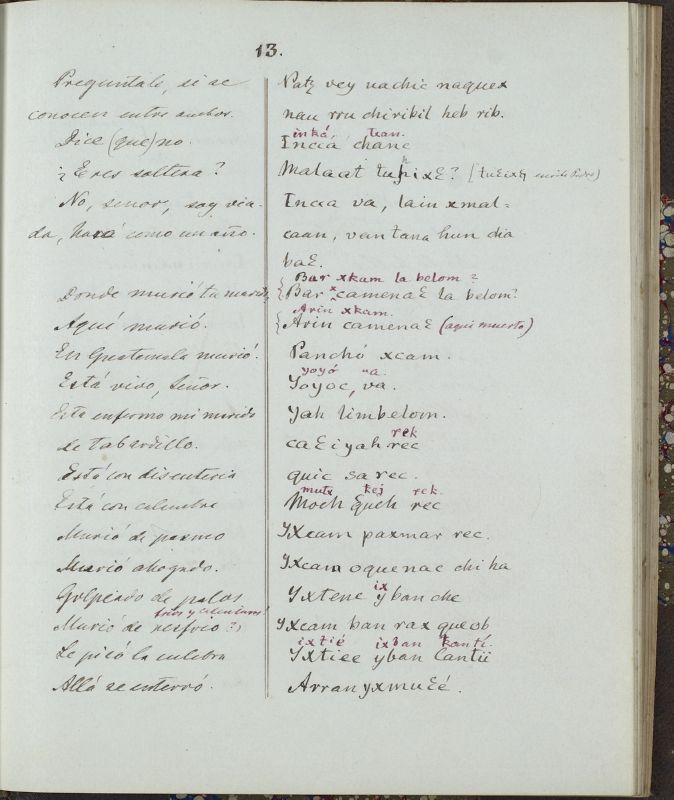 13.
Preguntale, si se Patz vey nachic naquex
conocen entre ambos. nau rru chiribil heb rib.
inká, tean.
Dice (que) no. Incaá chanc
¿Eres soltera? Malaat tuhixԐ? [tuԐixԐ
No, senor, soy viu- Incaa va, lain xmal=
da, hará como un año. caan, vantana hun dia
baԐ.
Bar xkam la belom?
Donde murió tu marido, Bar xcamenaԐ la belom?
Arin xkam.
Aquí murió. Arin camenaԐ (aqui muerto)
En Guatemala murió. Panchó xcam.
yoyó va.
Está vivo, Señor. Yoyoc, va.
Esta enfermo mi marido Yah limbelom.
rek
de tabardillo. caԐiyah rec
Está con disenteria quic sa rec.
mutx kej rek.
Está con calentura Moch Ԑuch rec
Murió de pasmo Yxcam paxmar rec.
Murió ahogado. Yxcam oquenac chi ha
ix
Golpeado de palos Yxtene yban che
frios y calenturas
Murió de resfrio? Yxcam ban rax queob
ixtié ixban kantí.
Le picó la culebra Yxtiee yban Cantii
Allá se enterró. Arran yxmuԐé.